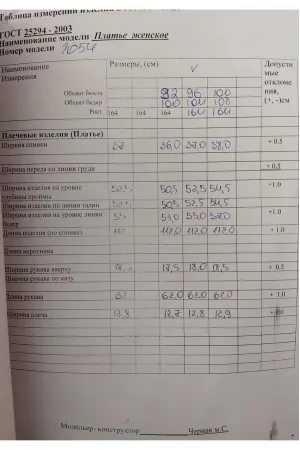 Таблица измерений изделия
ГОСТ 25294 - 2003
Наименование модели Платье женское
Номер модели 1054
Наименование Измерения Размеры, (см) V Допусти мые отклоне ния, (+, -)см
Обхват бюста 92 96 100
Обхват бедер 100 104 108
Рост 164 164 164 164 164
Плечевые изделия (Платье)
Ширина спинки 36,0 37,0 38,0 + 0.5
Ширина переда по линии груди + 0.5
Ширина изделия по уровне глубины проймы 52,5 50,5 52,5 54,5 +1.0
Ширина изделия по линии талии 50,5 52,5 54,5
Ширина изделия на уровне линии бедер 55 53,0 55,0 57,0 +1.0
Длина изделия (по спинке) 112,0 112,0 112,0 +1.0
Длина воротника
Ширина рукава вверху 17,5 18,0 18,5 + 0.5
Ширина рукава по низу
Длина рукава 62 62,0 62,0 62,0 + 1.0
Ширина плеча 12,8 12,7 12,8 12,9
Модельер- конструтор Чермак М.С.